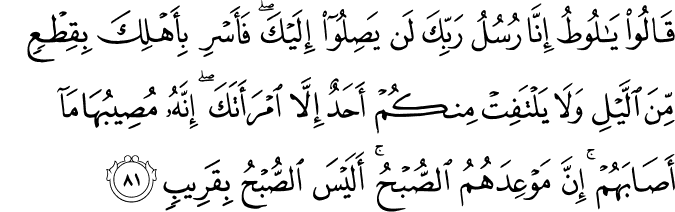 قَالُوا۟ يَـٰلُوطُ إِنَّا رُسُلُ رَبِّكَ لَن يَصِلُوٓا۟ إِلَيْكَ ۖ فَأَسْرِ بِأَهْلِكَ بِقِطْعٍ
مِّنَ ٱلَّيْلِ وَلَا يَلْتَفِتْ مِنكُمْ أَحَدٌ إِلَّا ٱمْرَأَتَكَ ۖ إِنَّهُۥ مُصِيبُهَا مَآ
أَصَابَهُمْ ۚ إِنَّ مَوْعِدَهُمُ ٱلصُّبْحُ ۚ أَلَيْسَ ٱلصُّبْحُ بِقَرِيبٍ ٨١